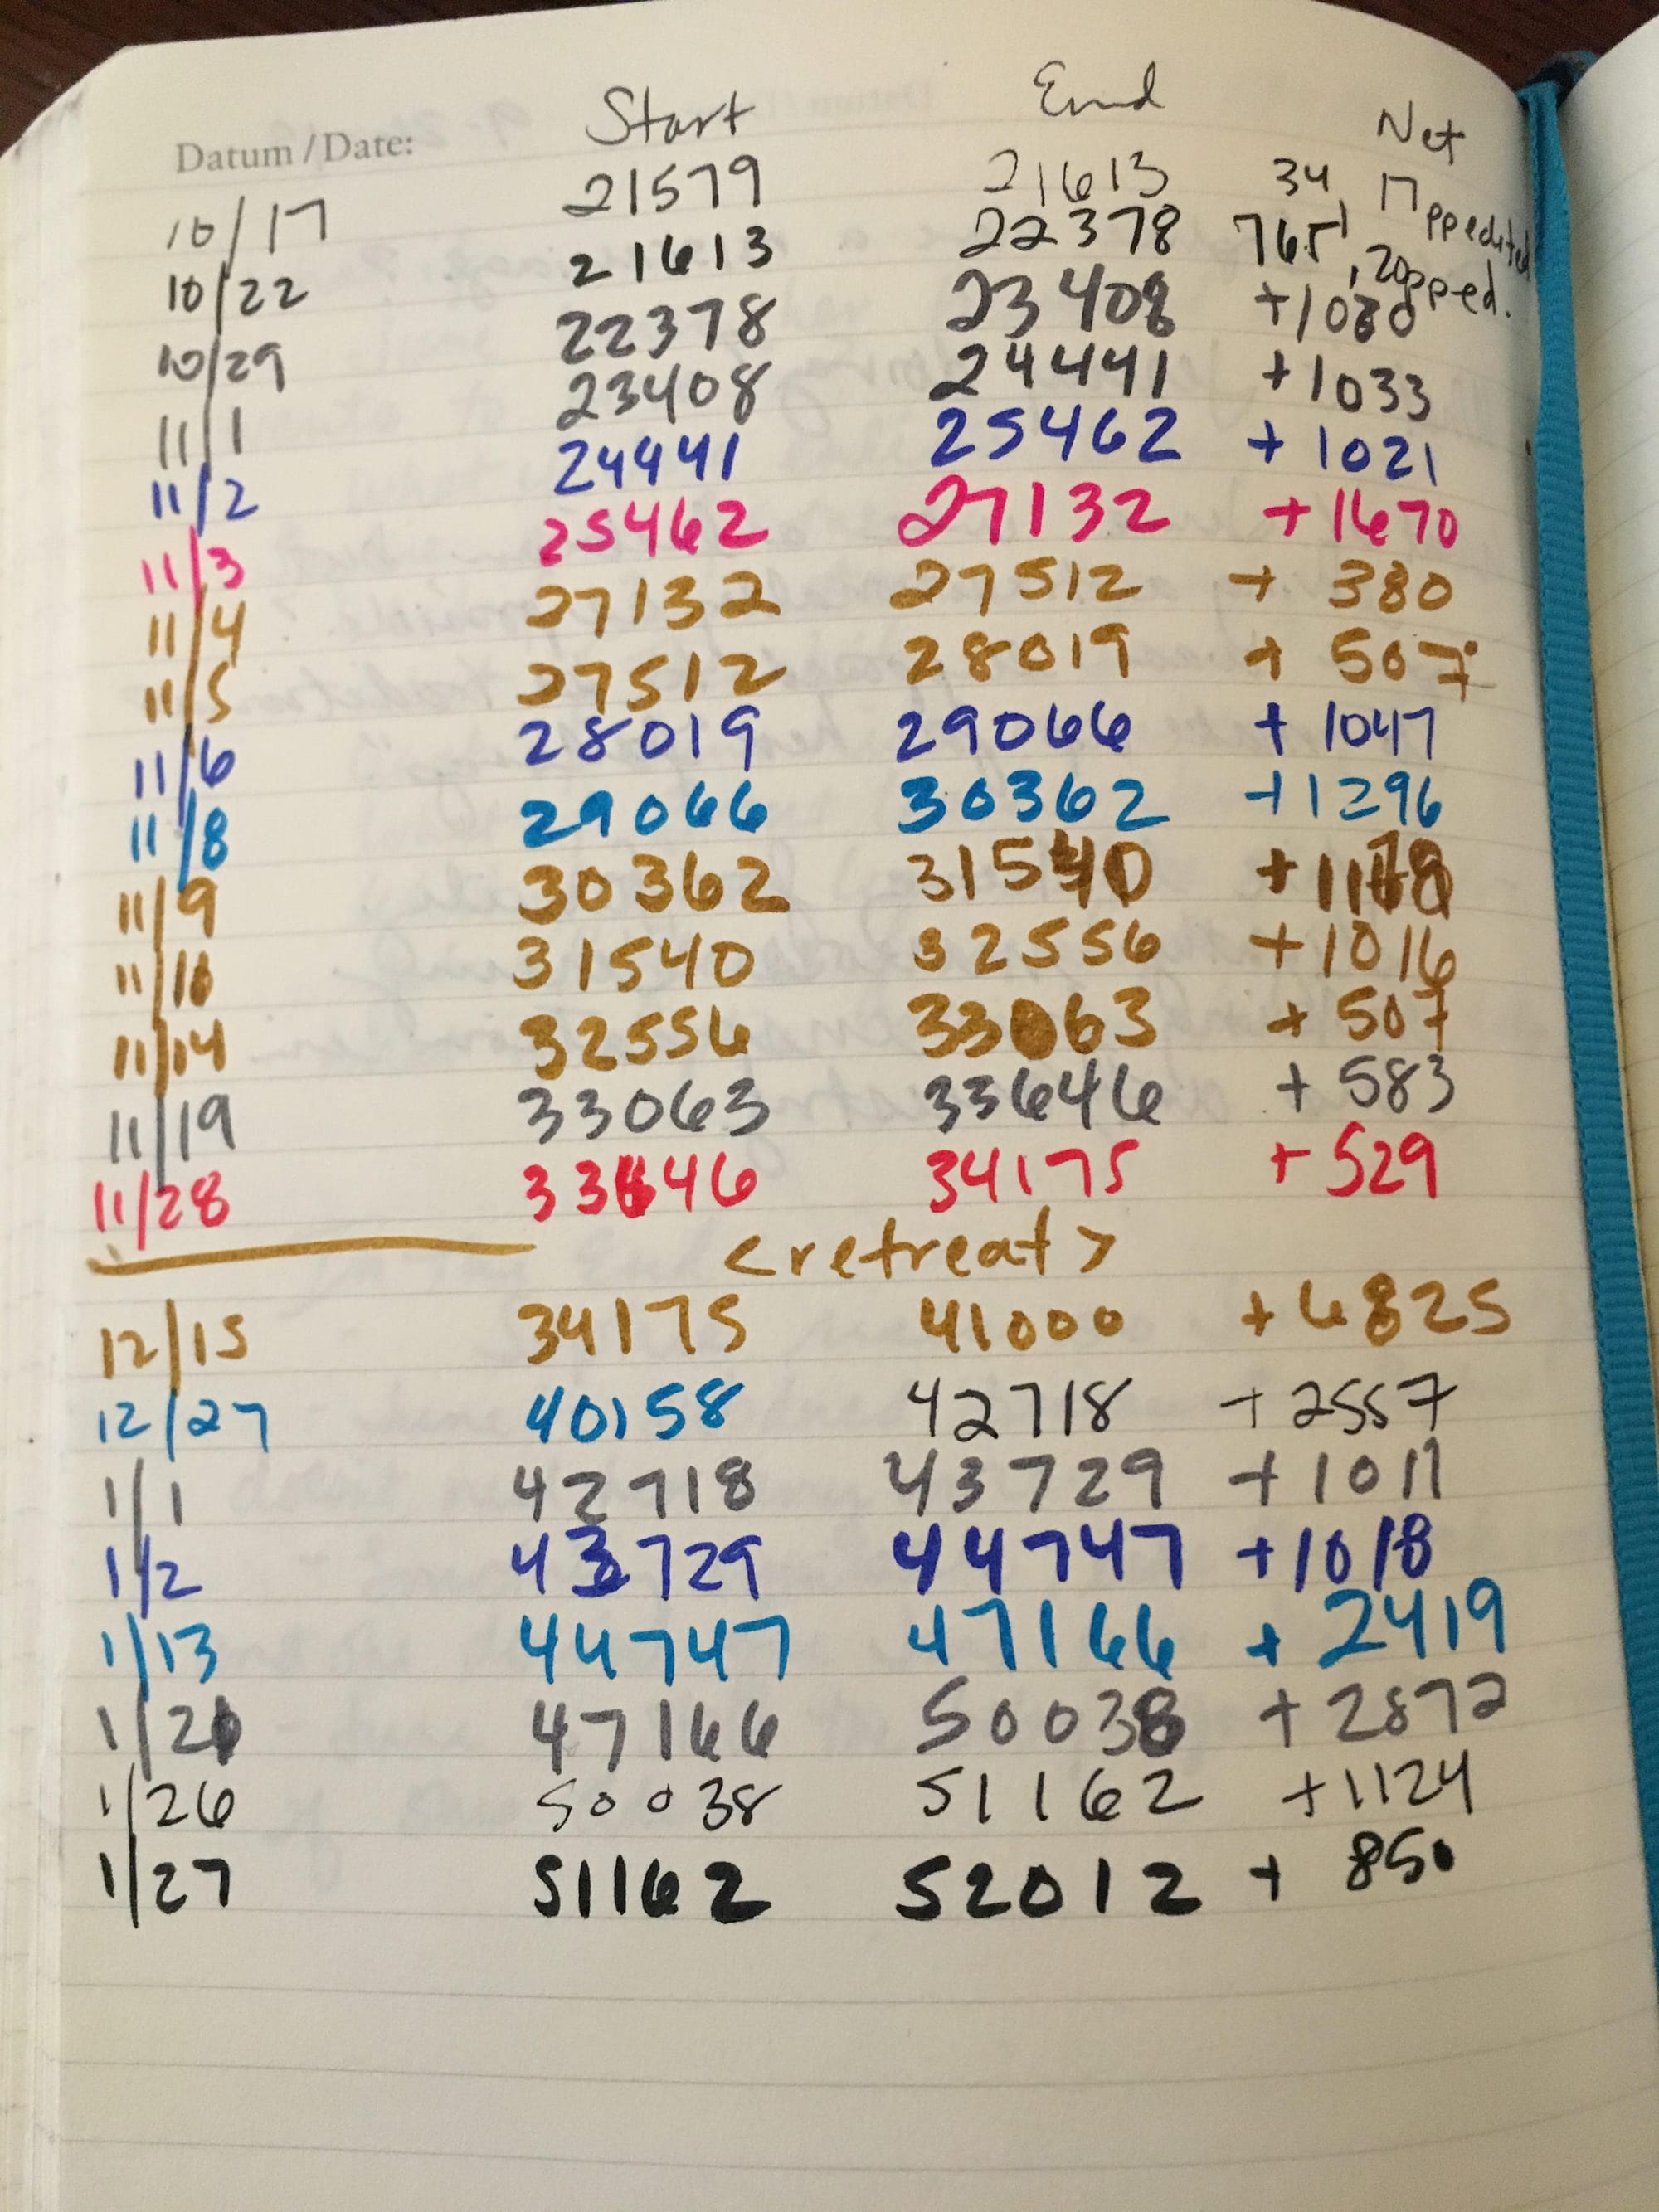 Start End Net
Datum / Date:
10/17 21579 21613 34, 17 pp edited
10/22 21613 22378 765, 20pp ed.
10/29 22378 23408 +1030
11/1 23408 24441 +1033
11/2 24441 25462 + 1021
11/3 25462 27132 + 1670
11/4 27132 27512 + 380
11/5 27512 28019 + 507
11/6 28019 29066 + 1047
11/8 29066 30362 +1296
11/9 30362 31540 +1178
11/10 31540 32556 +1016
11/14 32556 33063 + 507
11/19 33063 33646 + 583
11/28 33646 34175 + 529
<retreat>
12/15 34175 41000 +6825
12/27 40158 42718 +2557
1/1 42718 43729 +1011
1/2 43729 44747 +1018
1/13 44747 47166 + 2419
1/20 47166 50038 + 2872
1/26 50038 51162 +1124
1/27 51162 52012 + 850